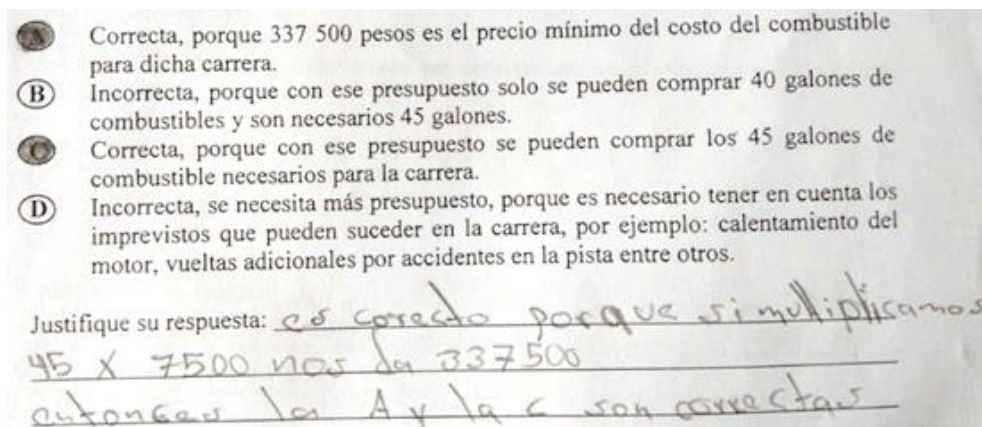 A Correcta, porque 337 500 pesos es el precio mínimo del costo del combustible
para dicha carrera.
B Incorrecta, porque con ese presupuesto solo se pueden comprar 40 galones de
combustibles y son necesarios 45 galones.
C Correcta, porque con ese presupuesto se pueden comprar los 45 galones de
combustible necesarios para la carrera.
D Incorrecta, se necesita más presupuesto, porque es necesario tener en cuenta los
imprevistos que pueden suceder en la carrera, por ejemplo: calentamiento del
motor, vueltas adicionales por accidentes en la pista entre otros.
Justifique su respuesta: es corecto porque si multiplicamos
45 x 7500 nos da 337500
entonces la A y la c son correctas